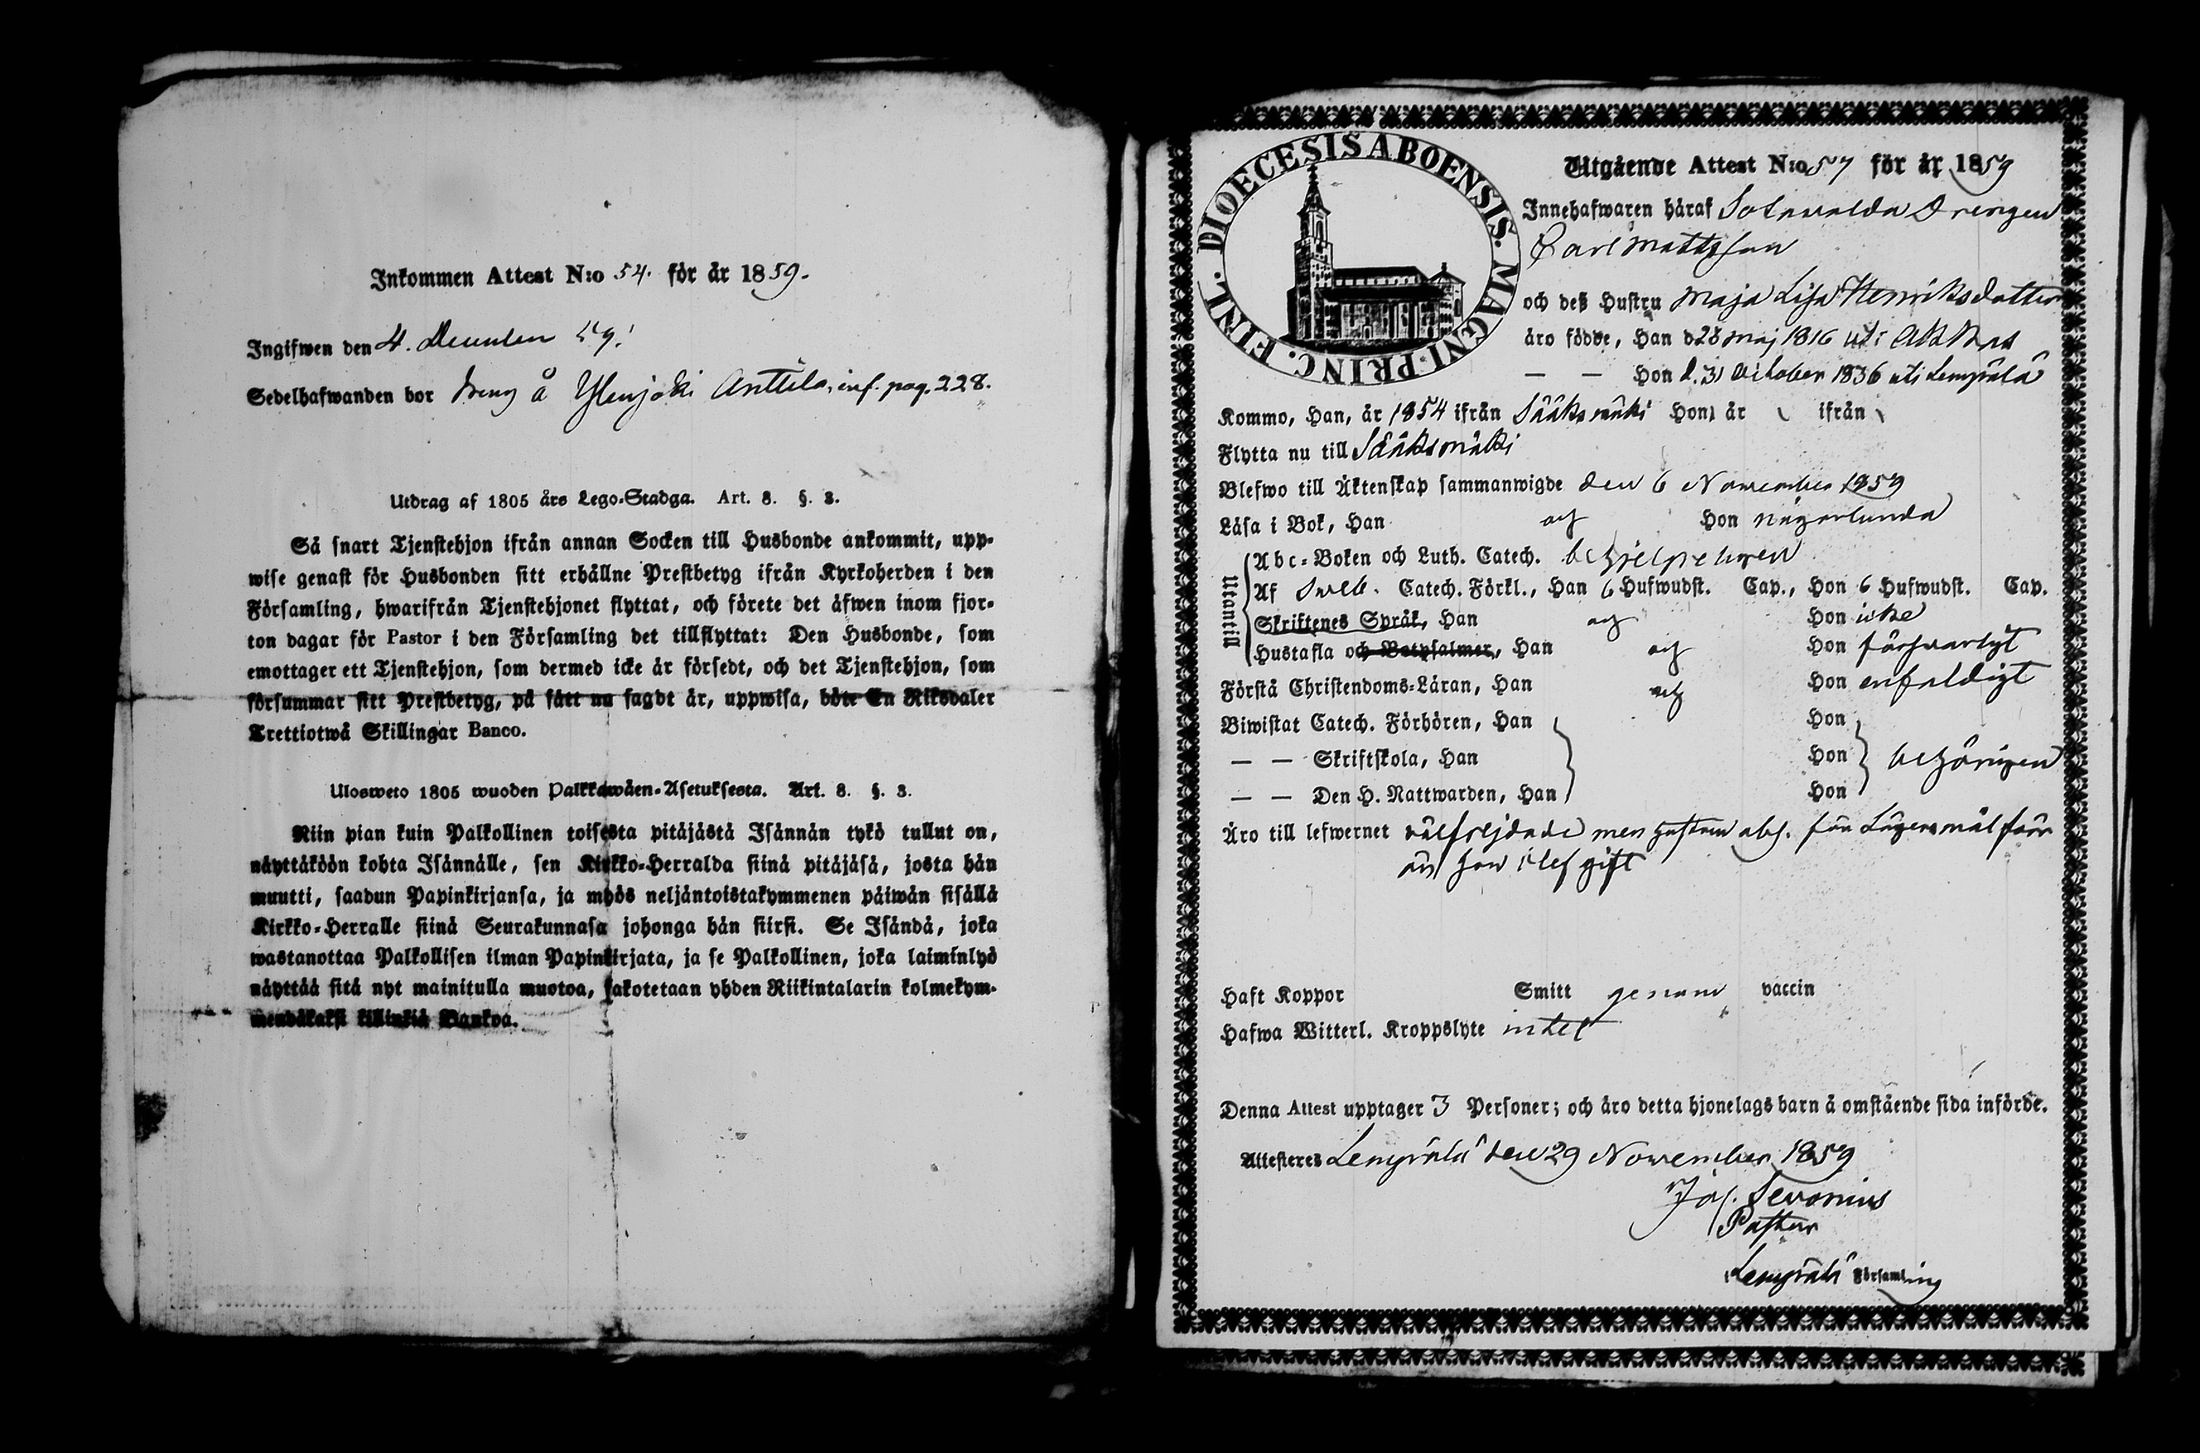 Inkommen Attest N:o 54. för år 1859.
Ingifwen den 4. December 59.
Sedelhafwanden bor dreng å Ylenjoki Anttila, inf. pag. 228.
Utdrag af 1805 års Lego-Stadga. Art. 8. §. 3.
Så snart Tjenstehjon ifrån annan Socken till Husbonde ankommit, upp-
wise genast för Husbonden sitt erhållne Prestbetyg ifrån Kyrkoherden i den
Församling, hwarifrån Tjenstehjonet flyttat, och förete det äfwen inom fjor-
ton dagar för Pastor i den Församling det tillflyttat: Den Husbonde, som
emottager ett Tjenstehjon, som dermed icke är försedt, och det Tjenstehjon, som
försummar sitt Prestbetyg, på sätt nu sagdt är, uppwisa, böte En Riksdaler
Trettiotwå Skillingar Banco.
Ulosweto 1805 wuoden Palkkawäen-Asetuksesta. Art. 8. §. 3.
Niin pian kuin Palkollinen toisesta pitäjästä Isännän tykö tullut on,
näyttäköön kohta Isännälle, sen Kirkko-Herralda siinä pitäjäsä, josta hän
muutti, saadun Papinkirjansa, ja myös neljäntoistakymmenen päiwän sisällä
Kirkko-Herralle siinä Seurakunnasa johonga hän siirsi. Se Isändä, joka
wastanottaa Palkollisen ilman Papinkirjata, ja se Palkollinen, joka laiminlyö
näyttää sitä nyt mainitulla muotoa, sakotetaan yhden Riikintalarin kolmekym-
mendäkaksi killinkiä Bankoa.
DIOECESIS ABOENSIS. MAGNI. PRINC. FINL.
Utgående Attest N:o 57 för år 1859
Innehafwaren häraf Drengen
Carl Mattsson
och deß Hustru Maja Lisa Henriksdotter
äro födde, Han d 28 Maj 1816 uti Akkas
— — Hon d. 31 October 1836 uti Lempälä
Kommo, Han, år 1854 ifrån Sääksmäki Hon, år ifrån
Flytta nu till Sääksmäki
Blefwo till Äktenskap sammanwigde den 6 November 1859
Läsa i Bok, Han och Hon någorlunda
Utantill
Abc-Boken och Luth. Catech. behjelpeligen
Af Sweb. Catech. Förkl., Han 6 Hufwudst. Cap., Hon 6 Hufwudst. Cap.
Skriftenes Språk, Han och Hon icke
Hustafla och Botpsalmer, Han och Hon försvarligt
Förstå Christendoms-Läran, Han och Hon enfaldigt
Biwistat Catech. Förhören, Han Hon
— — Skriftskola, Han Hon behörigen
— — Den H. Nattwarden, Han Hon
Äro till lefwernet välfrejdade men hustrun abs. för Lägersmål förr
än hon blef gift
Haft Koppor Smitt genom vaccin
Hafwa Witterl. Kroppslyte intet
Denna Attest upptager 3 Personer; och äro detta hjonelags barn å omstående sida införde.
Attesteras Lempälä den 29 November 1859
Jos.
Pastor
i Lempälä Församling